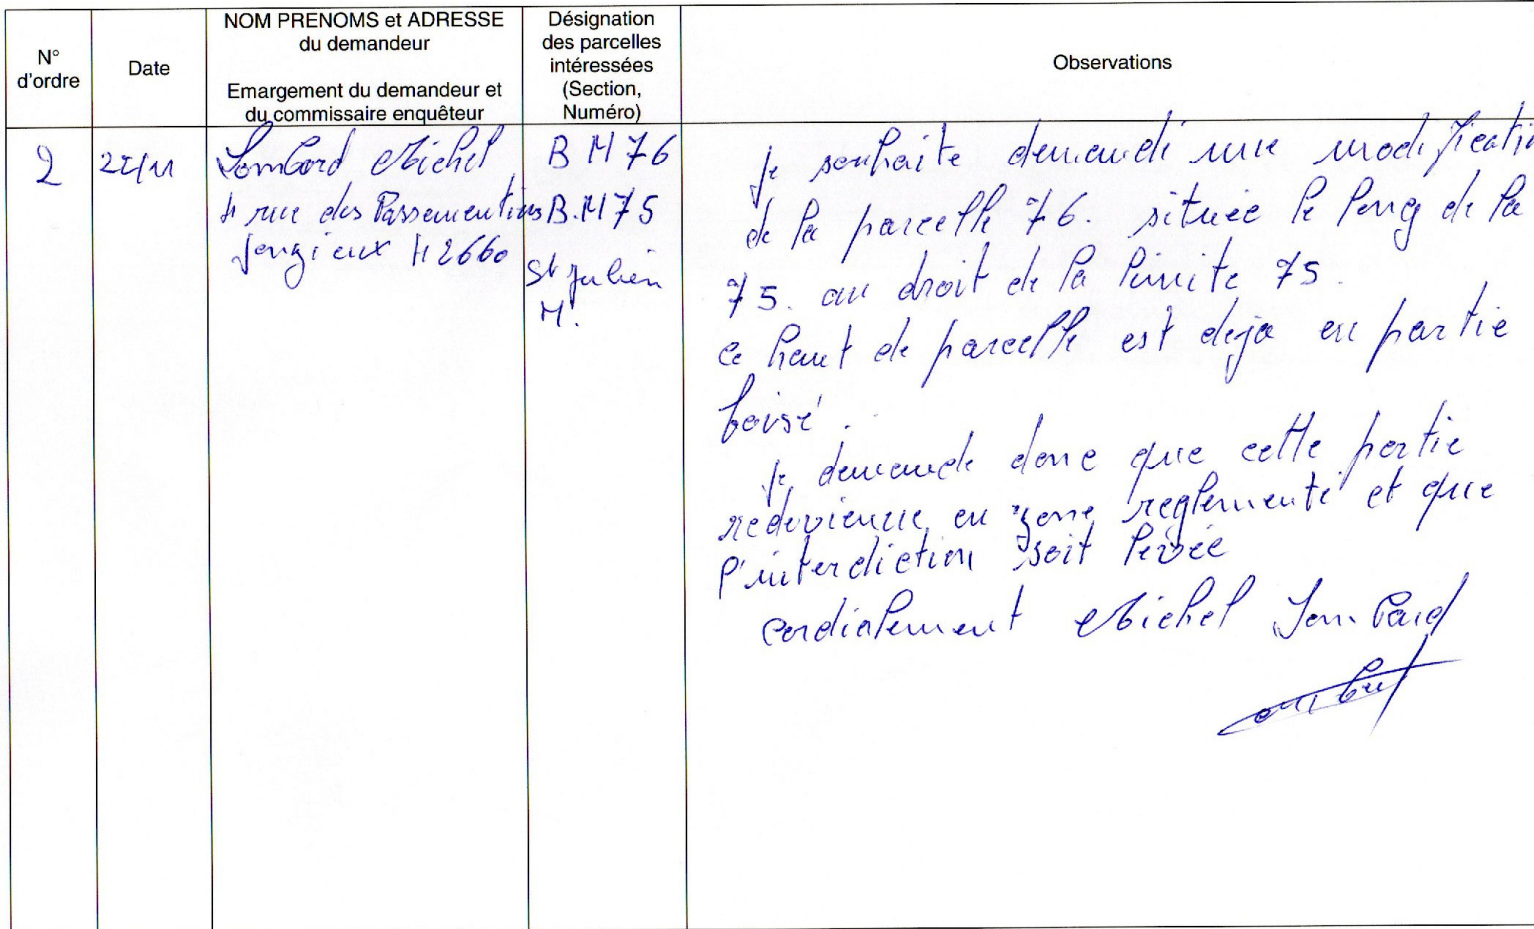 N° d'ordre
Date
NOM PRENOMS et ADRESSE
du demandeur
Emargement du demandeur et
du commissaire enquêteur
Désignation
des parcelles
intéressées
(Section,
Numéro)
Observations
2
Lombard Michel
4 rue des Passementiers
Jonzieux 42660
B M 76
B.M 75
St Julien
M.
je souhaite demandé une modification
de la parcelle 76. située le long de la
75. au droit de la limite 75.
ce haut de parcelle est deja en partie
boisé.
je demande donc que cette partie
redevienne en zone reglementé et que
l'interdiction soit levée
cordialement Michel Lombard